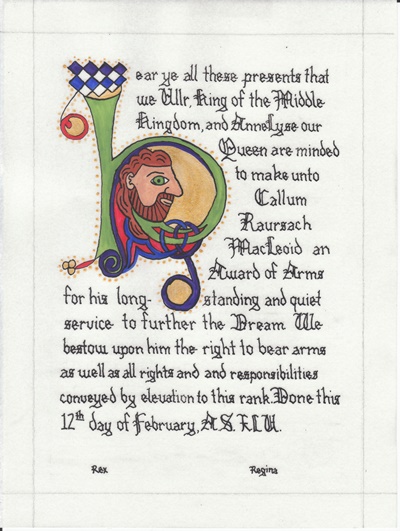 hear ye all these presents that
we Ullr, King of the Middle
Kingdom, and AnneLyse our
Queen are minded
to make unto
Callum
Raursach
MacLeoid an
Award of Arms
for his long-standing and quiet
service to further the Dream We
bestow upon him the right to bear arms
as well as all rights and and responsibilities
conveyed by elevation to this rank. Done this
12th day of February, A.S. XLV.
Rex Regina